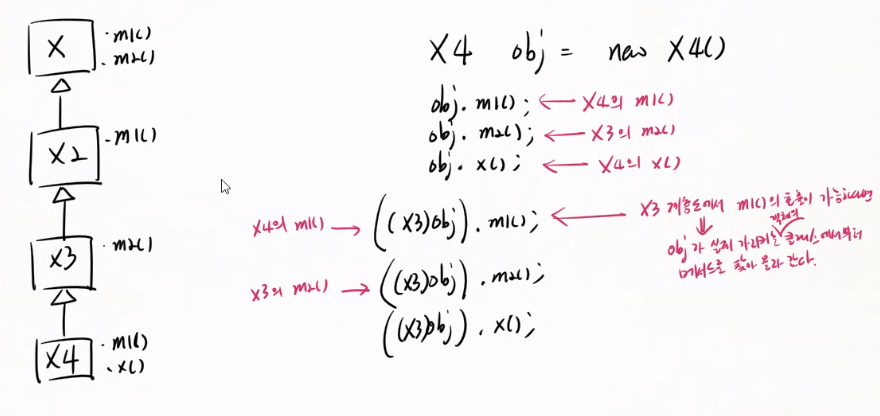 X
· m1()
· m2()
X2
· m1()
X3
· m2()
X4
· m1()
· x()
X4 obj = new X4()
obj. m1(); ← X4의 m1()
obj. m2(); ← X3의 m2()
obj. x(); ← X4의 x()
X4의 m1() → ((X3)obj). m1(); ← X3 계층도에서 m1()의 호출이 가능하다면
객체의
obj가 실제 가리키는 클래스에서부터
메서드를 찾아 올라 간다.
X3의 m2() → ((X3)obj). m2();
((X3)obj). x();